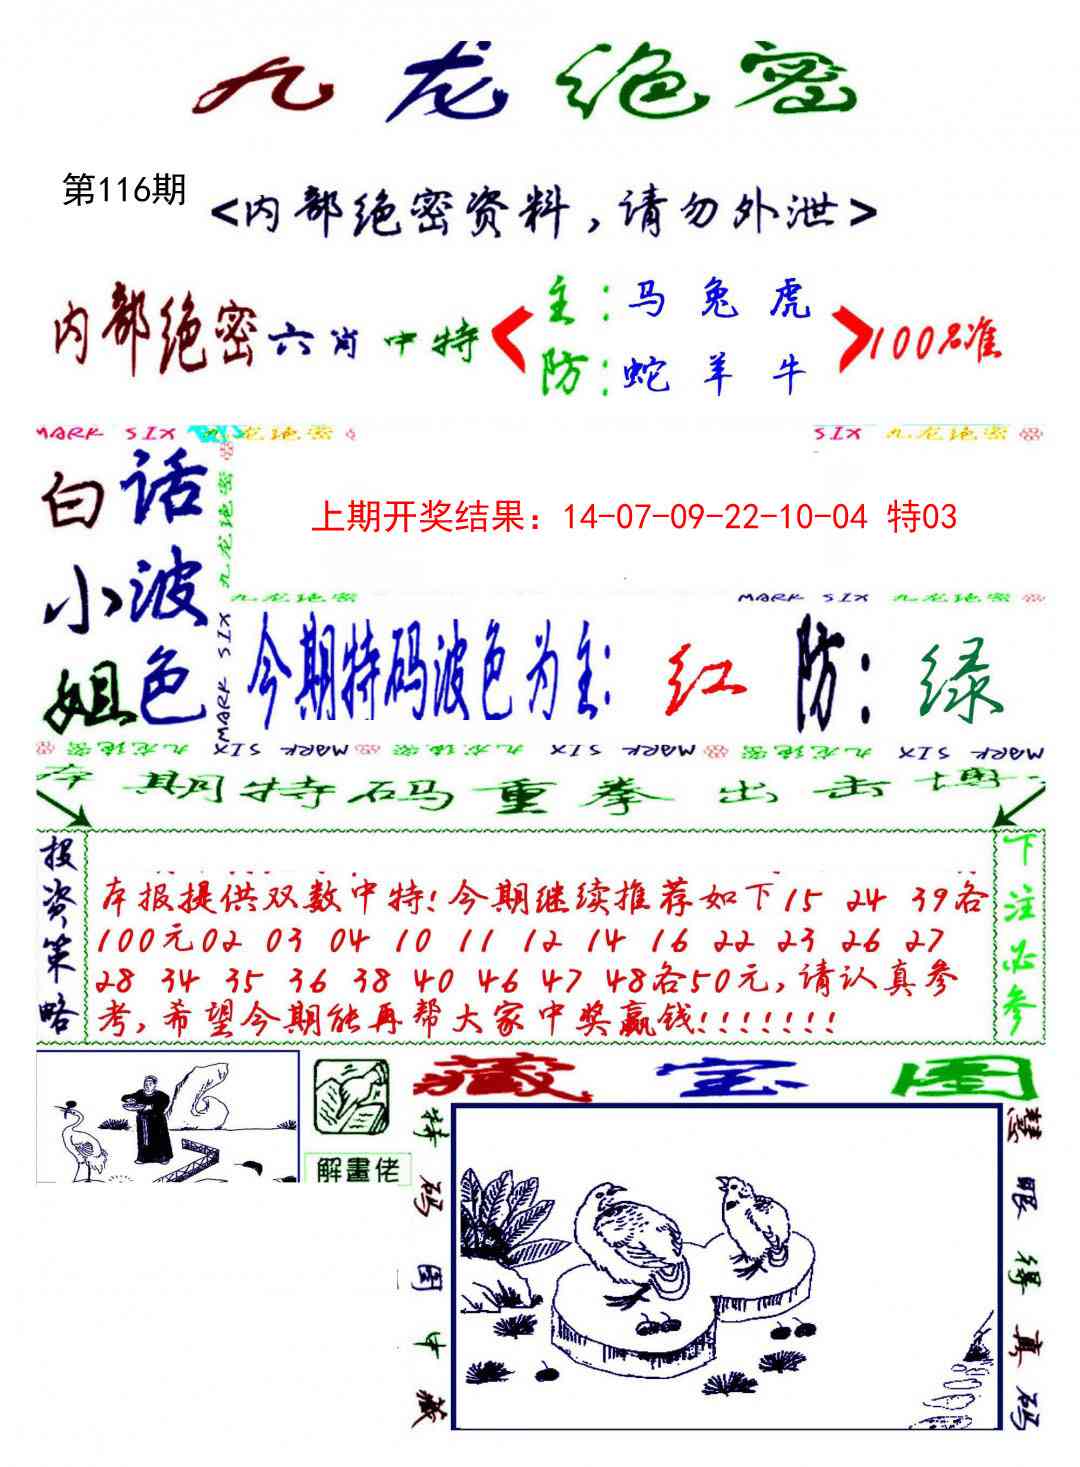 九龙绝密
第116期
<内部绝密资料,请勿外泄>
内部绝密六肖中特
主:马 兔 虎
防:蛇 羊 牛
100%准
MARK SIX 九龙绝密
SIX 九龙绝密
白话
小波
姐色
九龙绝密
MARK SIX
上期开奖结果：14-07-09-22-10-04 特03
九龙绝密
MARK SIX 九龙绝密
今期特码波色为主: 红 防: 绿
九龙绝密 MARK SIX 九龙绝密 MARK SIX 九龙绝密 MARK SIX
本期特码重拳出击博
投资策略
本报提供双数中特!今期继续推荐如下15 24 39各
100元02 03 04 10 11 12 14 16 22 23 26 27
28 34 35 36 38 40 46 47 48各50元,请认真参
考,希望今期能再帮大家中奖赢钱!!!!!!!
下注必参
解畫佬
藏宝图
特码图中藏
慧眼得真码